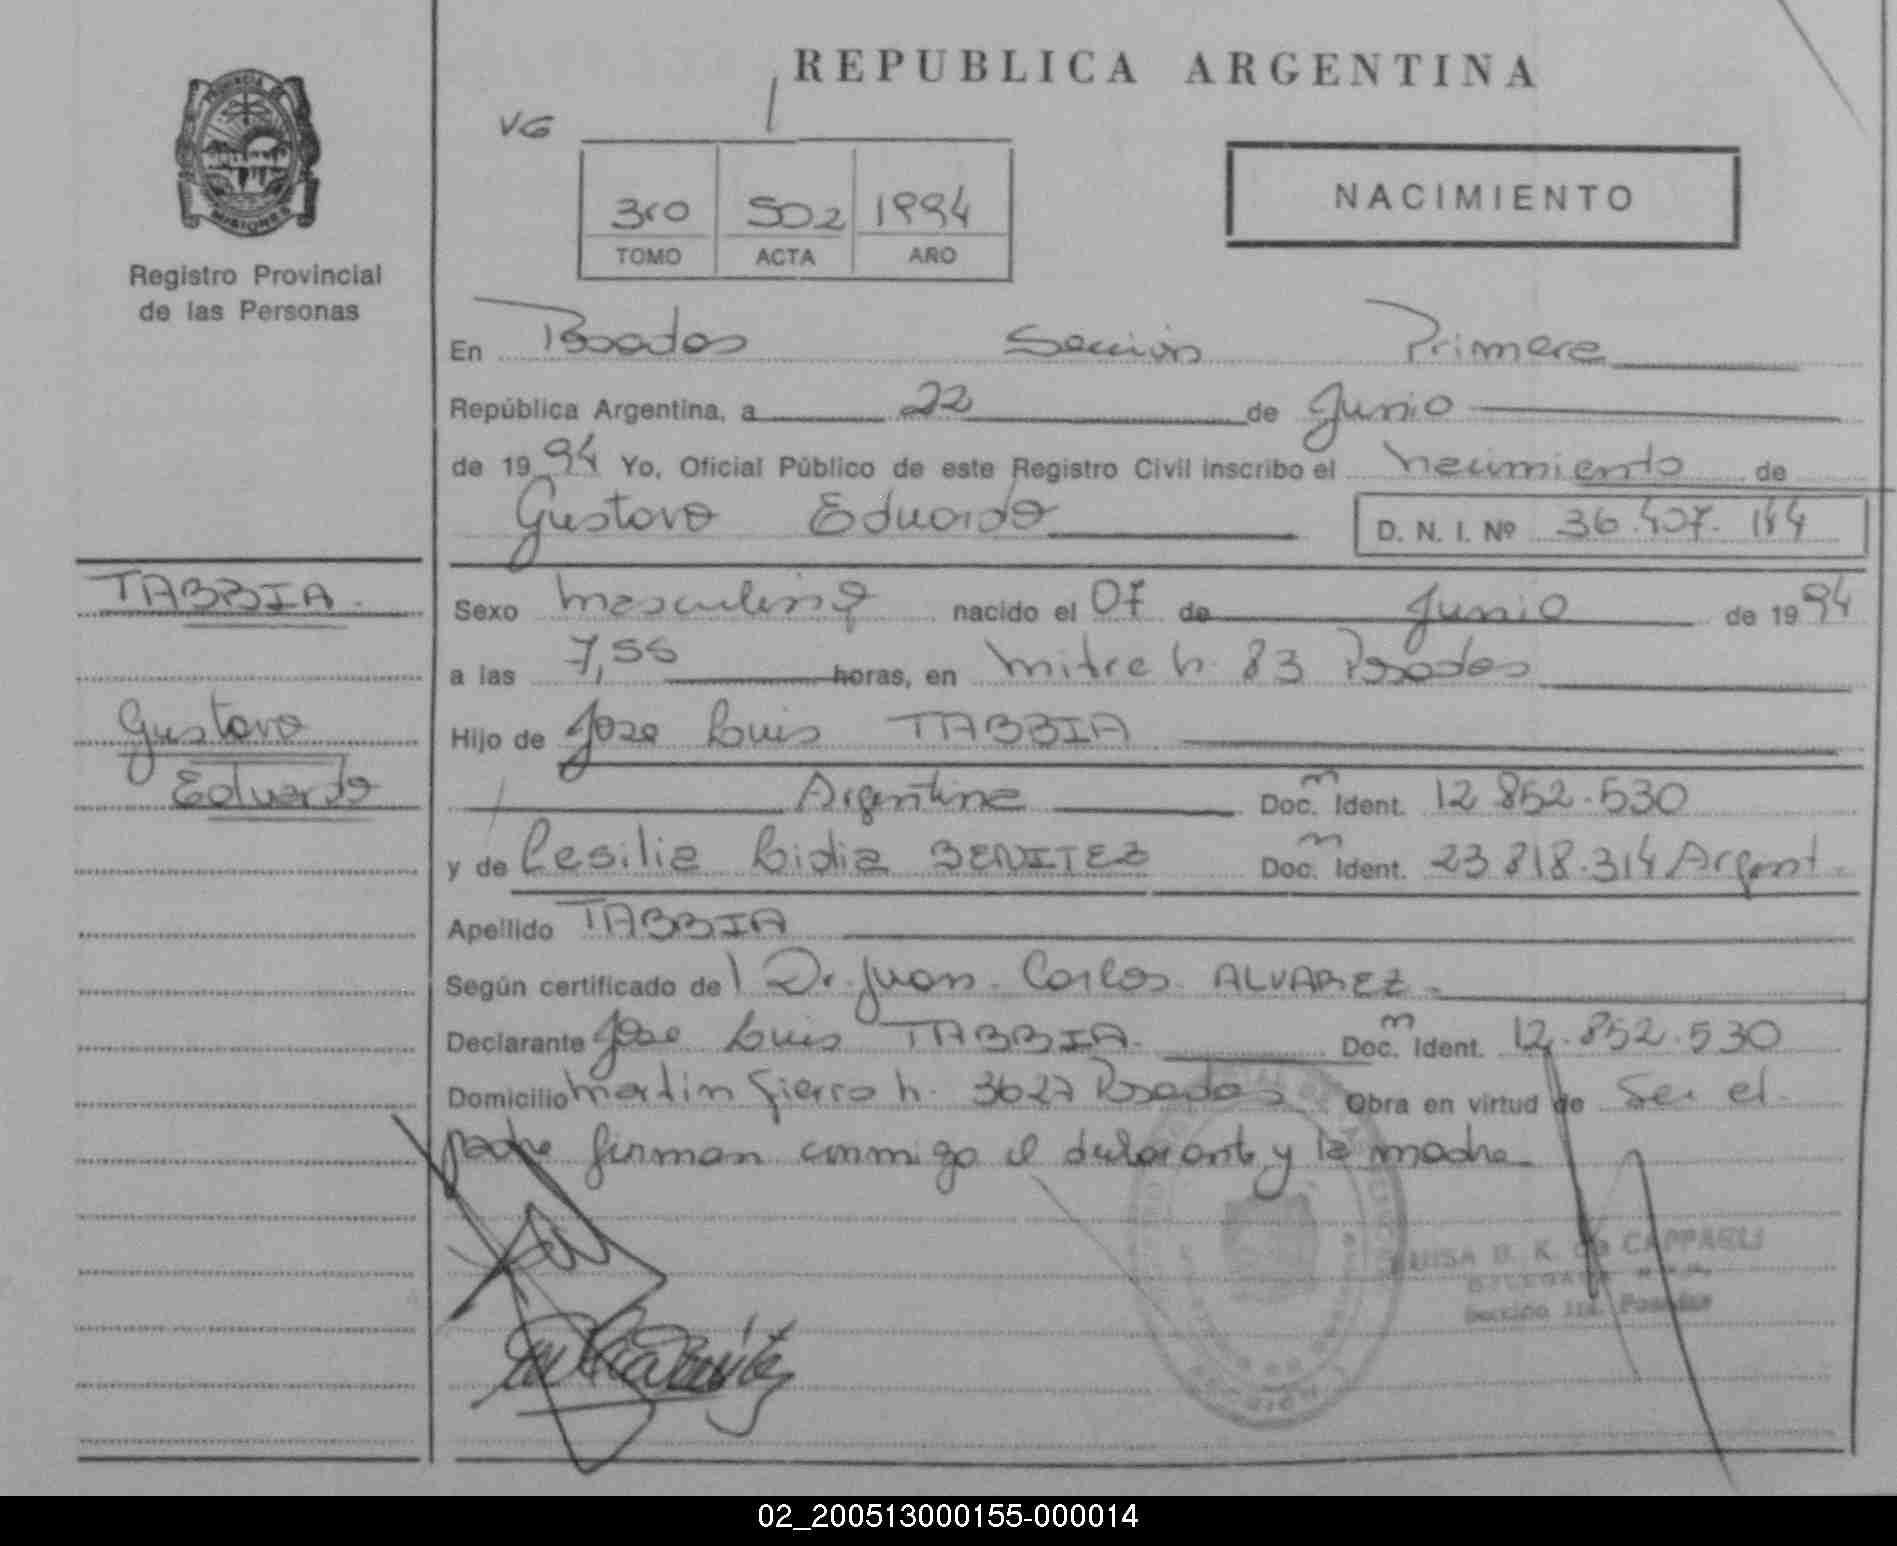 REPUBLICA ARGENTINA
VG
NACIMIENTO
3ro 502 1994
TOMO ACTA AÑO
PROVINCIA
MISIONES
Registro Provincial
de las Personas
En Posadas Sección Primera
República Argentina, a 22 de Junio
de 1994 Yo, Oficial Público de este Registro Civil inscribo el nacimiento de
Gustavo Eduardo D. N. I. Nº 36.407.144
TABBIA
Sexo masculino nacido el 07 de Junio de 1994
a las 7,55 horas, en mitre n. 83 Posadas
Gustavo
Hijo de Jose Luis TABBIA
Eduardo
Argentina Doc. m Ident. 12.852.530
y de Cesilia Lidia BENITEZ Doc. m Ident. 23.818.314 Argent.
Apellido TABBIA
Según certificado del Dr. Juan Carlos ALVAREZ
Declarante Jose Luis TABBIA Doc. m Ident. 12.852.530
Domicilio Martin Fierro n. 3627 Posadas Obra en virtud de Ser el
padre firman conmigo el declarante y la madre
LUISA B. K. de CAPPAELI
DELEGADA
Sección 1ra. Posadas
02_200513000155-000014